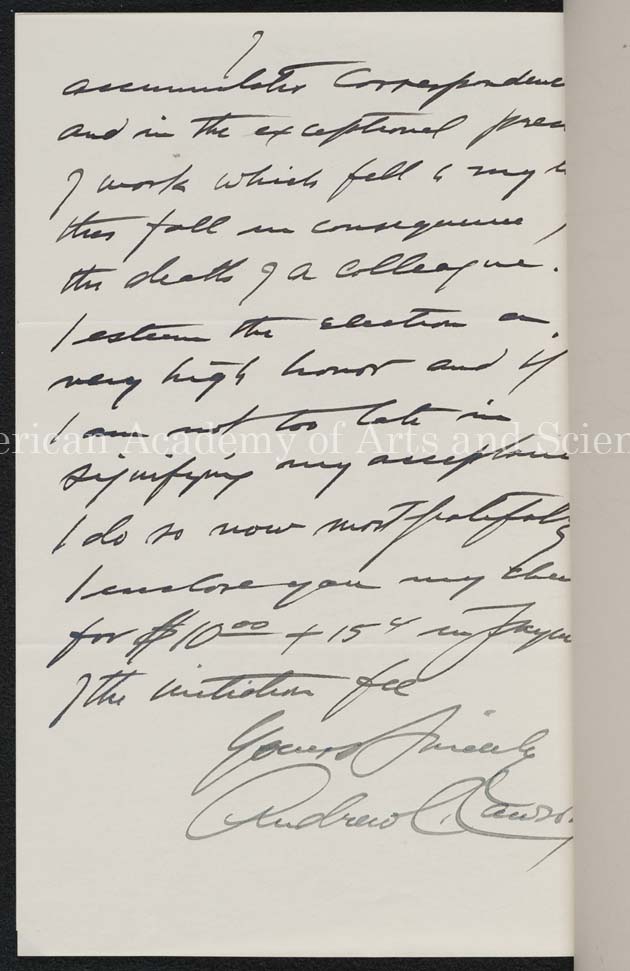 accumulated correspondenc
and in the exceptional pres
of work which fell to my
this fall in consequence
the death of a colleague.
I esteem the election a
very high honor and if
I am not too late in
signifying my acceptanc
I do so now most gratefully
I enclose you my chec
for $10.00 + 15c in paym
of the initiation fee
Yours Sincerely
Andrew C. Lawson
merican Academy of Arts and Scien